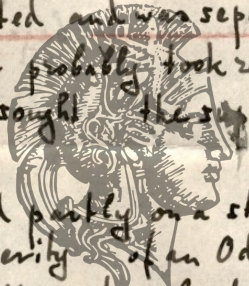 ted and was sep
probably took
sought the sup
d partly on a st
erity of an Od